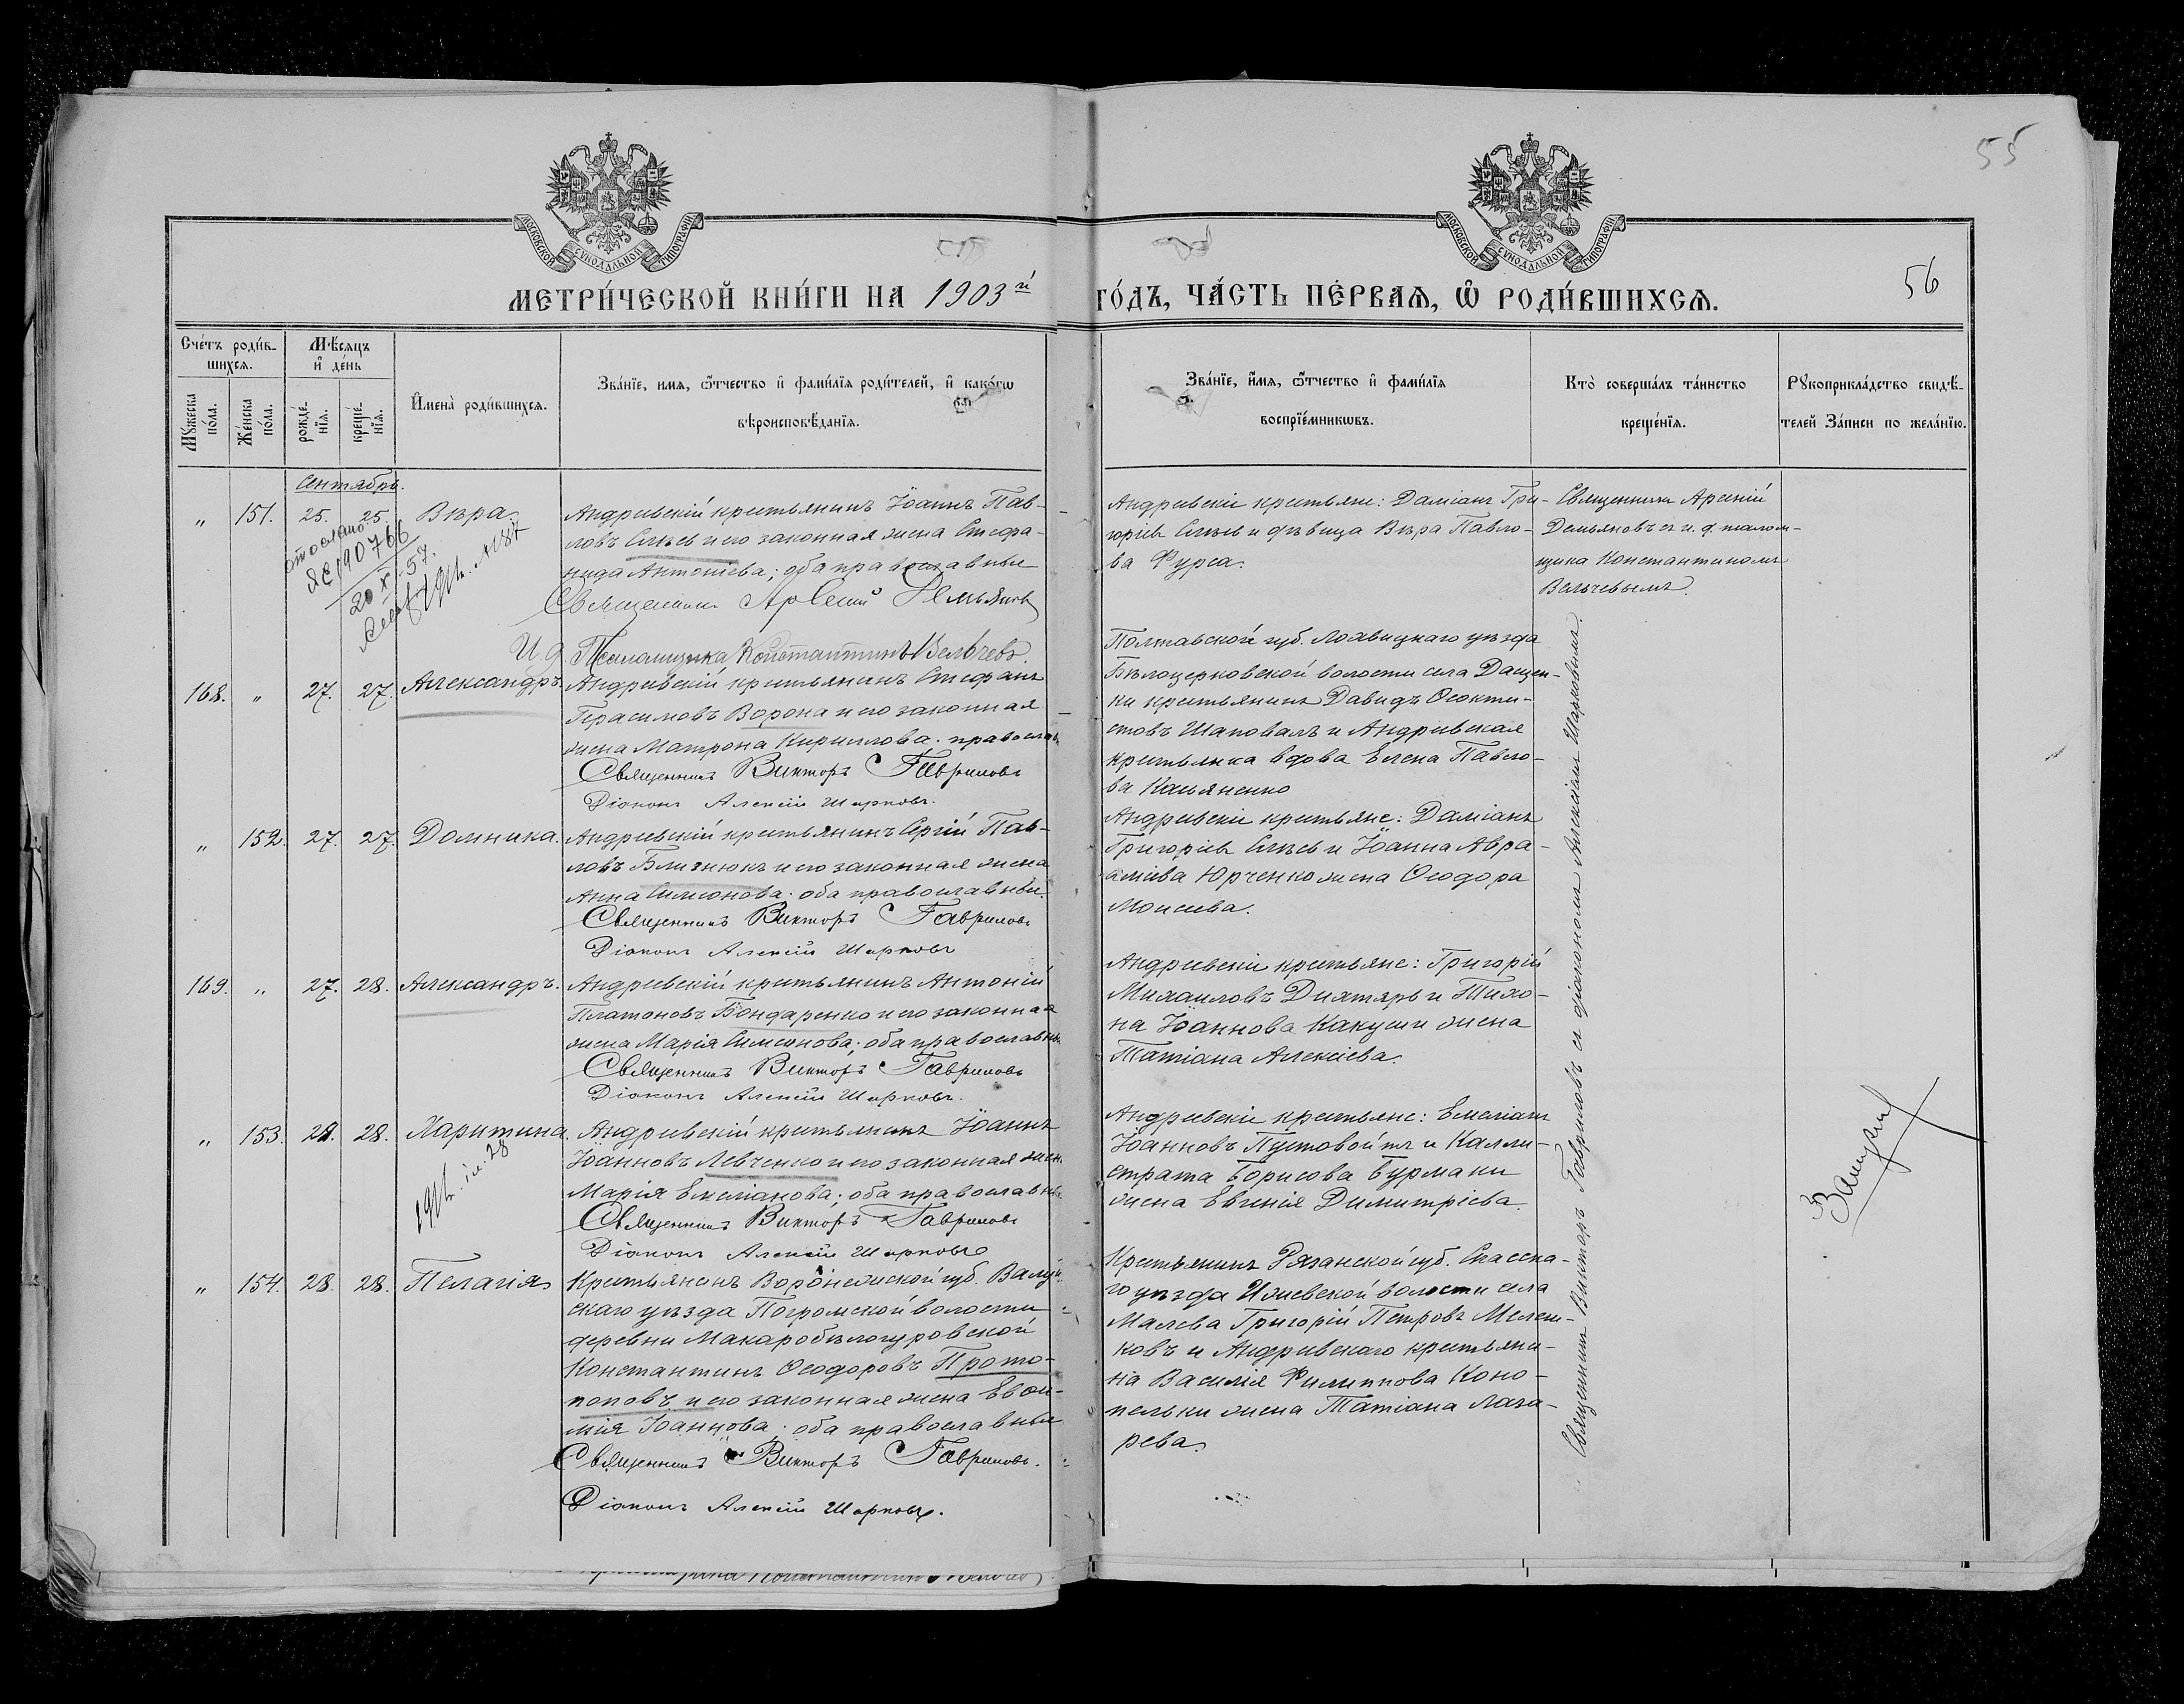 55
МОСКОВСКОЙ СУНОДАЛЬНОЙ ТИПОГРАФІИ
МОСКОВСКОЙ СУНОДАЛЬНОЙ ТИПОГРАФІИ
МЕТРИ́ЧЕСКОЙ КНИ́ГИ НА 1903й ГО́ДЪ, ЧА́СТЬ ПЕ́РВАѦ, Ѡ҆ РОДИ́ВШИХСѦ.
56
Сче́тъ роди́в-
шихсѧ.
Мꙋ́жеска по́ла.
Же́нска по́ла.
Мѣ́сѧцъ и҆ де́нь
рожде́-нїѧ.
креще́-нїѧ.
И҆мена̀ роди́вшихсѧ.
Зва́нїе, имѧ, ѻ҆́тчество и҆ фами́лїѧ роди́телей, и҆ како́гѡ
вѣроисповѣ́данїѧ.
Зва́нїе, и҆́мѧ, ѻ҆́тчество и҆ фами́лїѧ
воспрїе́мникѡвъ.
Кто̀ соверша́лъ та́инство
креще́нїѧ.
Рꙋкоприкла́дство свидѣ́-
телей За́писи по жела́нїю.
Сентябрь.
„ 151. 25. 25. Вѣра.
Андреевскій крестьянинъ Іоаннъ Пав-
ловъ Слѣсь и его законная жена Стефа-
нида Антоніева; оба православные
Священникъ Арсеній Демьяновъ
И. д. Псаломщика Константинъ Вельчевъ.
Андреевскіе крестьяне: Даміанъ Гри-
горіевъ Слѣсь и дѣвица Вѣра Павло-
ва Фурса.
Священникъ Арсеній
Демьяновъ съ и. д. псалом-
щика Константиномъ
Вельчевымъ.
отослано
ЯЄ 190766
20 X 57.
168. „ 27. 27. Александръ.
Андреевскій крестьянинъ Стефанъ
Герасимовъ Ворона и его законная
жена Матрона Кириллова. православ
Священникъ Викторъ Гавриловъ
Діаконъ Алексій Шарковъ.
Полтавской губ. Лохвицкаго уѣзда
Бѣлоцерковской волости села Дащен-
ки крестьянинъ Давидъ Ѳеокти-
стовъ Шаповалъ и Андреевская
крестьянка вдова Елена Павло-
ва Касьяненко
„ 152. 27. 27. Домника.
Андреевскій крестьянинъ Сергій Пав-
ловъ Близнюкъ и его законная жена
Анна Симеонова; оба православные.
Священникъ Викторъ Гавриловъ
Діаконъ Алексій Шарковъ
Андреевскіе крестьяне: Даміанъ
Григоріевъ Слѣсь и Іоанна Авра-
аміева Юрченко жена Ѳеодора
Моисеева.
169. „ 27. 28. Александръ.
Андреевскій крестьянинъ Антоній
Платоновъ Бондаренко и его законная
жена Марія Симеонова; оба православны
Священникъ Викторъ Гавриловъ
Діаконъ Алексій Шарковъ.
Андреевскіе крестьяне: Григорій
Михаиловъ Дихтярь и Тихо-
на Іоаннова Какуши жена
Татіана Алексіева.
„ 153. 28. 28. Харитина.
Андреевскій крестьянинъ Іоаннъ
Іоанновъ Левченко и его законная жен
Марія Емеліанова; оба православны
Священникъ Викторъ Гавриловъ
Діаконъ Алексій Шарковъ
Андреевскіе крестьяне: Емеліанъ
Іоанновъ Пустовойтъ и Калли-
страта Борисова Бурмаки
жена Евгенія Димитріева.
„ 154. 28. 28. Пелагія
Крестьянинъ Воронежской губ. Валуй
скаго уѣзда Погромской волости
деревни Макаробѣлогуровской
Константинъ Ѳеодоровъ Прото-
поповъ и его законная жена Евѳи-
мія Іоаннова; оба православные
Священникъ Викторъ Гавриловъ.
Діаконъ Алексій Шарковъ.
Крестьянинъ Рязанской губ. Спасска-
го уѣзда Ижевской волости села
Малева Григорій Петровъ Мелеш-
ковъ и Андреевскаго крестьяни-
на Василія Филиппова Коно-
пельки жена Татіана Лаза-
рева.
Священникъ Викторъ Гавриловъ съ діакономъ Алексіемъ Шарковымъ.